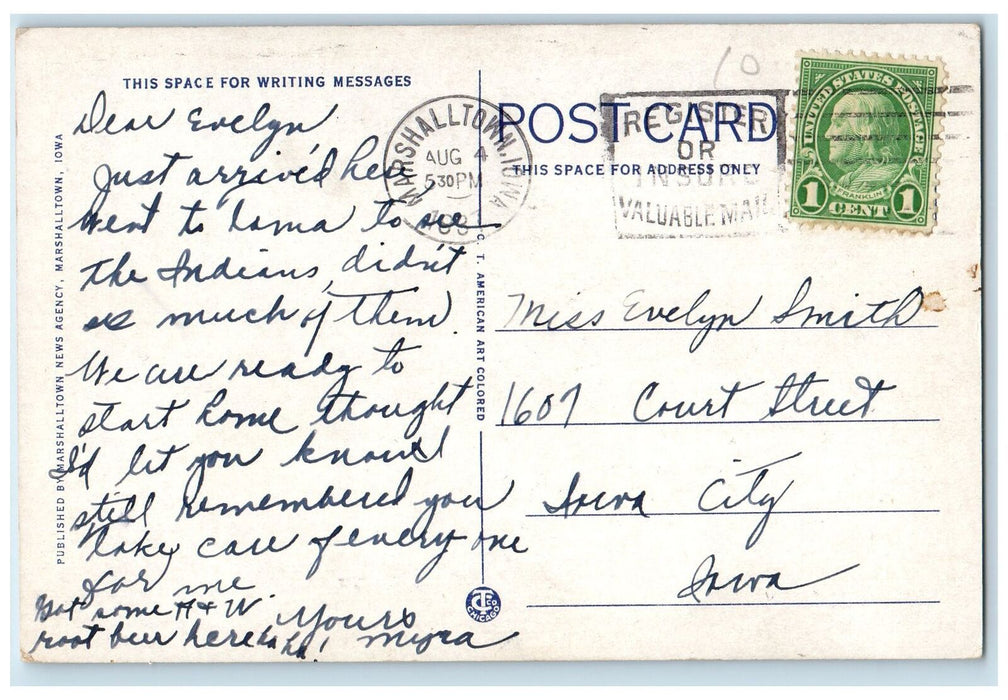 THIS SPACE FOR WRITING MESSAGES
Dear Evelyn
Just arrived here
Went to Tama to see
the Indians, didn't
see much of them.
We are ready to
start home thought
I'd let you know I
still remembered you
Take care of every one
for me.
Got some A & W.
root beer here ha ha!
Yours
Myra
PUBLISHED BY MARSHALLTOWN NEWS AGENCY, MARSHALLTOWN, IOWA
C. T. AMERICAN ART COLORED
CHICAGO
MARSHALLTOWN, IOWA
AUG 4
5 30 PM
POST CARD
THIS SPACE FOR ADDRESS ONLY
REGISTER
OR
INSURE
VALUABLE MAIL
10
UNITED STATES POSTAGE
FRANKLIN
1 CENT 1
Miss Evelyn Smith
1607 Court Street
Iowa City
Iowa